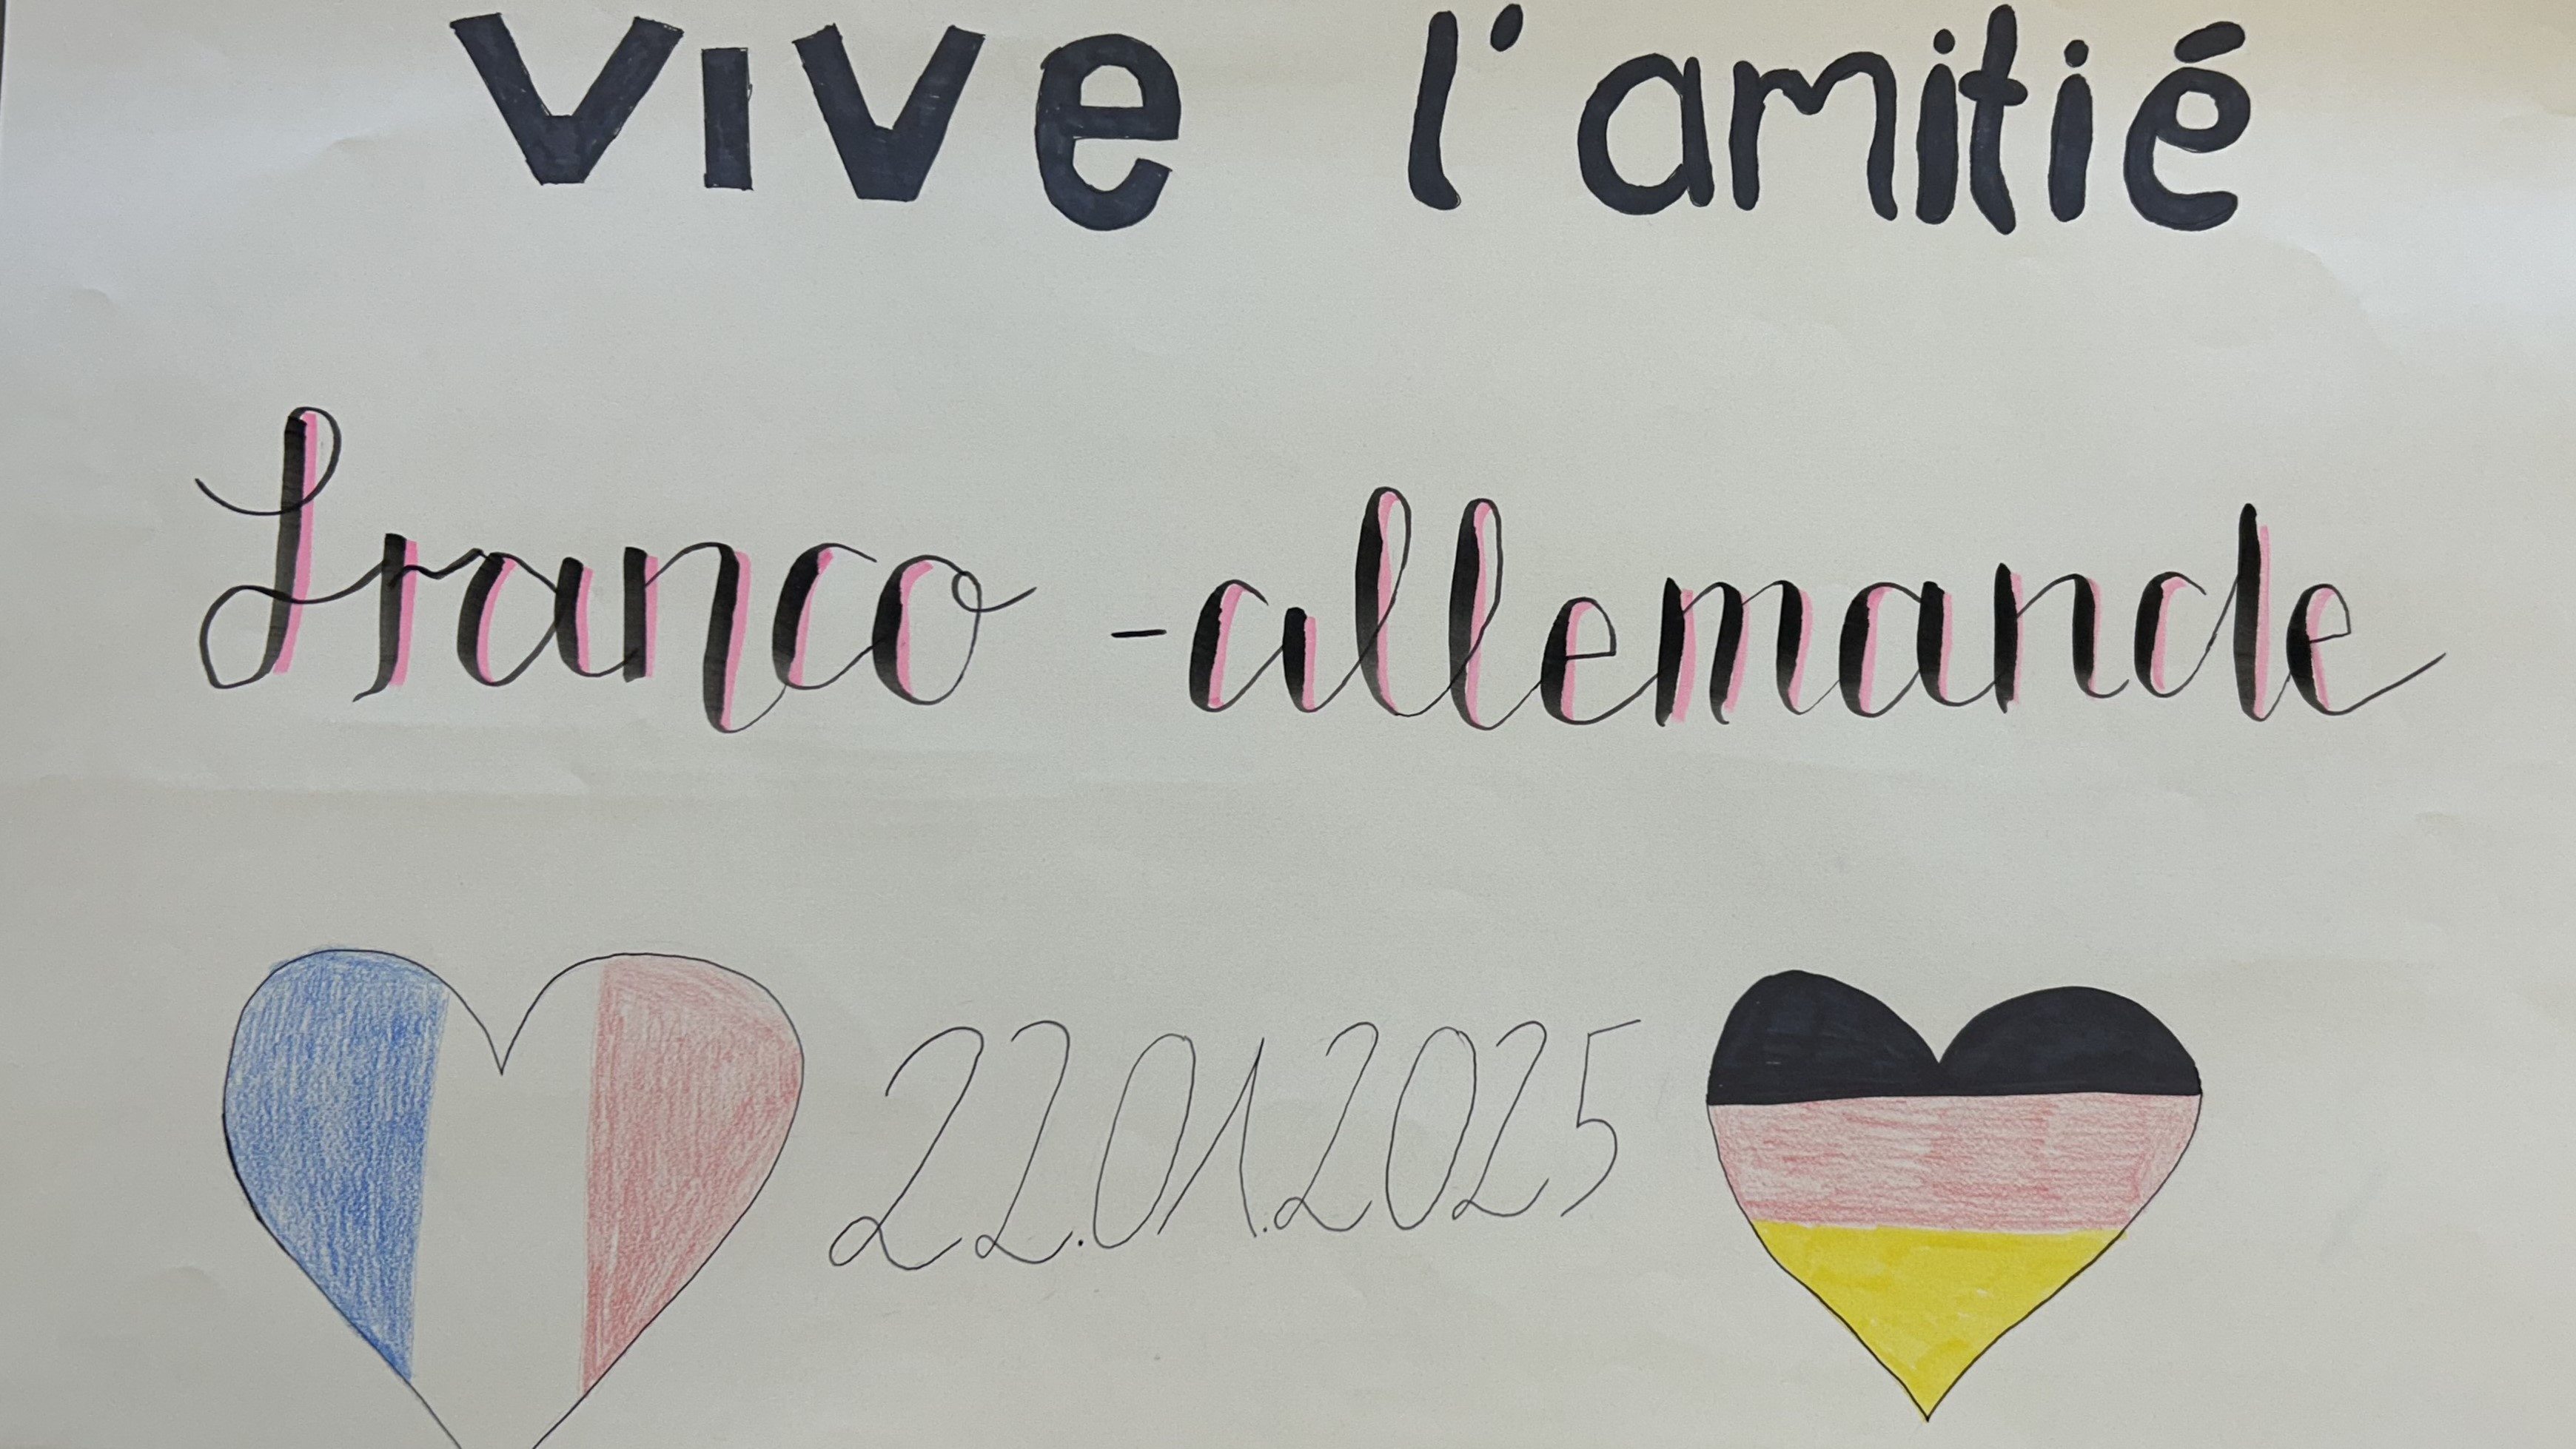 vive l'amitié
franco-allemande
22.01.2025